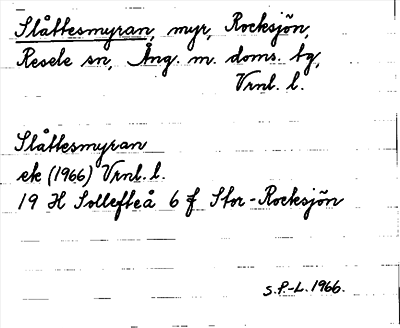 Slåttesmyran, myr, Rocksjön,
Resele sn, Ång. m. doms. tg,
Vrnl. l.
Slåttesmyran
ek (1966) Vrnl. l.
19 H Sollefteå 6 f Stor-Rocksjön
S.P.-L. 1966.